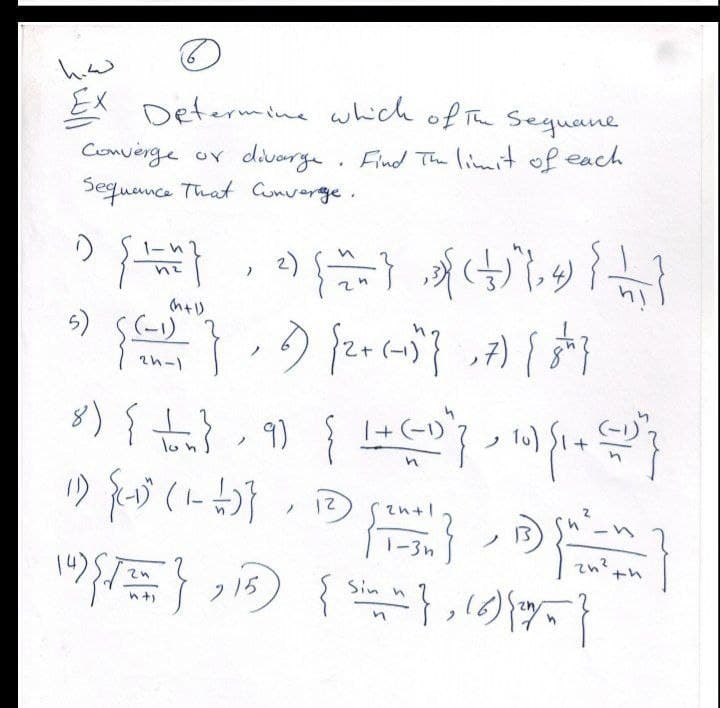 h.w 6
Ex Determine which of The Sequane
Converge or divarge. Find The limit of each
Sequence That Converge.
1) {(1-n)/n2}, 2) {n/2^n}, 3) {(1/3)^n}, 4) {1/n!}
5) {(-1)^(n+1)/(2n-1)}, 6) {2+(-1)^n}, 7) {1/8^n}
8) {1/10n}, 9) {(1+(-1)^n)/n}, 10) {1+(-1)^n/n}
11) {(-1)^n (1-1/n)}, 12 {(2n+1)/(1-3n)}, 13) {(n^2-n)/(2n^2+n)}
14) {√(2n/(n+1))}, 15) {Sin n/n}, 16) {2n√n}